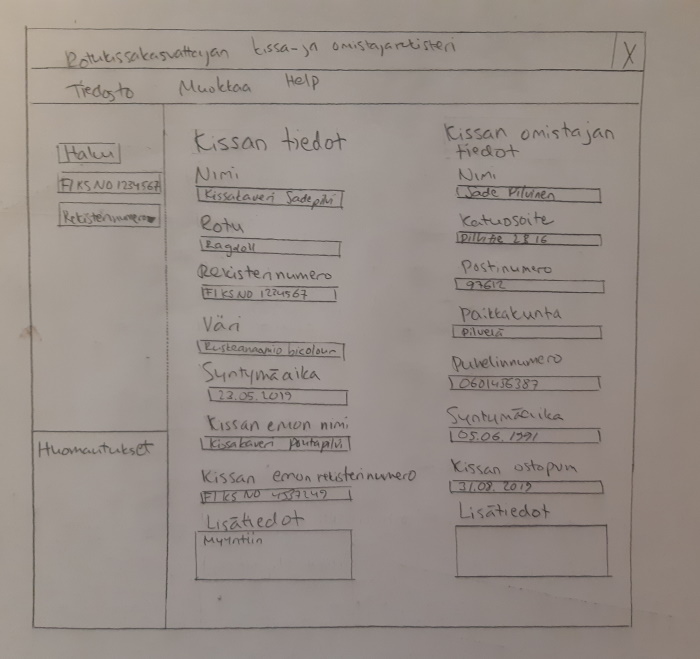 Rotukissakasvattajan kissa- ja omistajarekisteri X
Tiedosto Muokkaa Help
Haku
FI KS NO 1234567
Rekisterinumero
Huomautukset
Kissan tiedot
Nimi
Kissakaveri Sadepilvi
Rotu
Ragdoll
Rekisterinumero
FI KS NO 1234567
Väri
Ruskeanaamio bicolour
Syntymäaika
23.05.2019
Kissan emon nimi
Kissakaveri Poutapilvi
Kissan emon rekisterinumero
FI KS NO 4537249
Lisätiedot
Myyntiin
Kissan omistajan
tiedot
Nimi
Sade Pilvinen
Katuosoite
Pilvitie 2 B 16
Postinumero
93612
Paikkakunta
Pilvelä
Puhelinnumero
0601456387
Syntymäaika
05.06.1991
Kissan ostopvm
31.08.2019
Lisätiedot